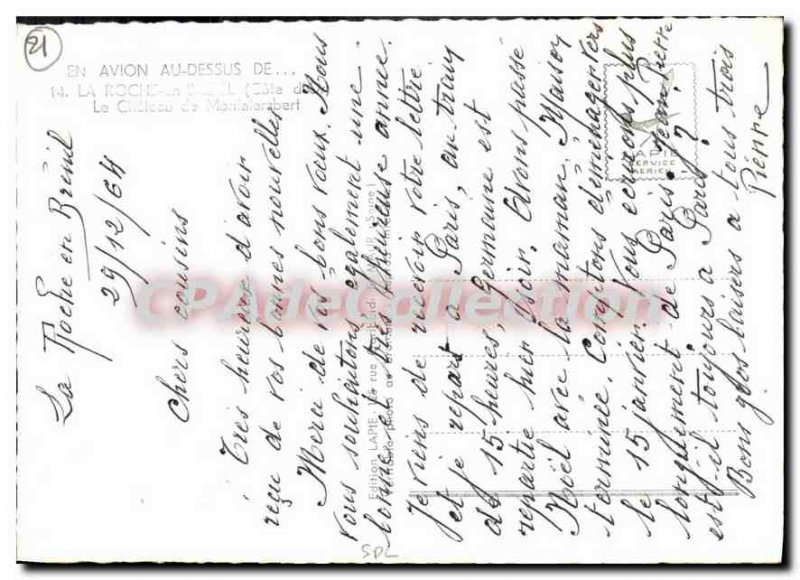 21
EN AVION AU-DESSUS DE...
14. LA ROCHE-en-BRENIL (Côte d
Le Château de Montalembert
La Roche en Brénil
29/12/64
Chers cousins
Très heureux d'avoir
reçu de vos bonnes nouvelles
Merci de vos bons vœux. Nous
vous souhaitons également une
bonne et très heureuse année.
Je viens de recevoir votre lettre
et je repart à Paris, au train
de 15 heures, Germaine est
repartie hier soir. Avons passé
Noël avec la maman. Maison
terminée. Comptons déménager vers
le 15 janvier. Vous écrirons plus
longuement de Paris. Jean-Pierre
est-il toujours à Paris?
Bons gros baisers à tous trois
Pierre
Edition LAPIE, rue
photo
SERVICE
AERIEN
CPADeCollection
SPL